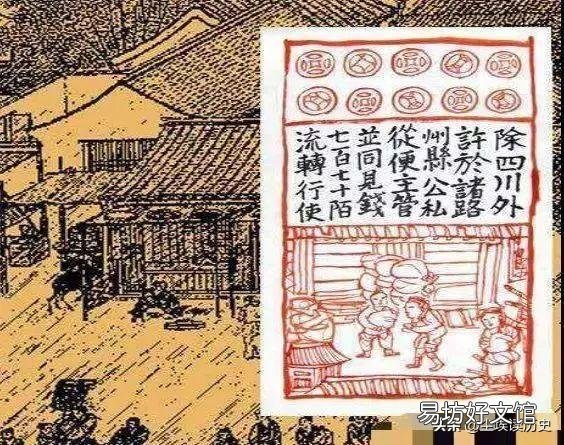 除四川外
許於諸路
州縣公私
從便主管
並同見錢
七百七十陌
流轉行使
易坊好文馆
头条 读历史